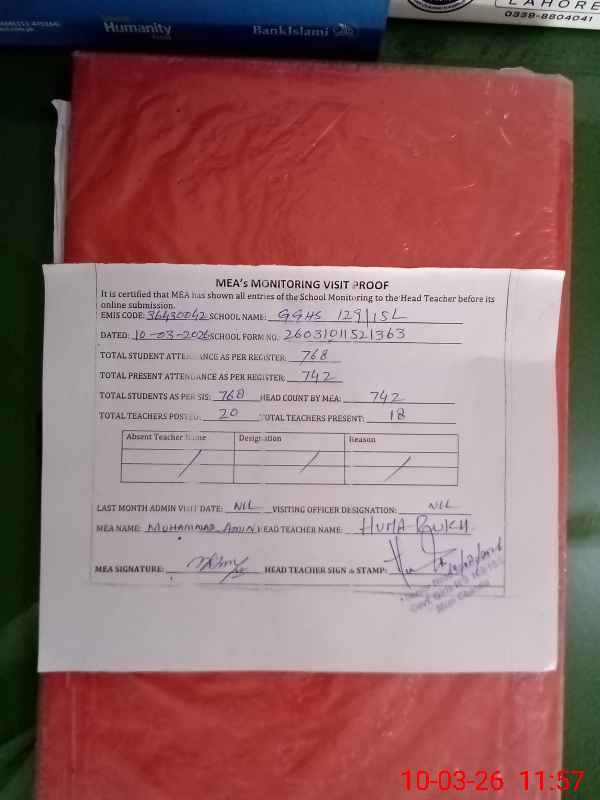 Humanity
BankIslami
LAHORE
0339-8804041
MEA's MONITORING VISIT PROOF
It is certified that MEA has shown all entries of the School Monitoring to the Head Teacher before its
online submission.
EMIS CODE: 36430042 SCHOOL NAME: GGHS 129/15L
DATED: 10-03-2026 SCHOOL FORM NO: 26031011521363
TOTAL STUDENT ATTENDANCE AS PER REGISTER: 768
TOTAL PRESENT ATTENDANCE AS PER REGISTER: 742
TOTAL STUDENTS AS PER SIS: 768 HEAD COUNT BY MEA: 742
TOTAL TEACHERS POSTED: 20 TOTAL TEACHERS PRESENT: 18
Absent Teacher Name Designation Reason
LAST MONTH ADMIN VISIT DATE: NIL VISITING OFFICER DESIGNATION: NIL
MEA NAME: MUHAMMAD AMIN HEAD TEACHER NAME: HUMA
MEA SIGNATURE: HEAD TEACHER SIGN & STAMP:
10-03-26 11:57